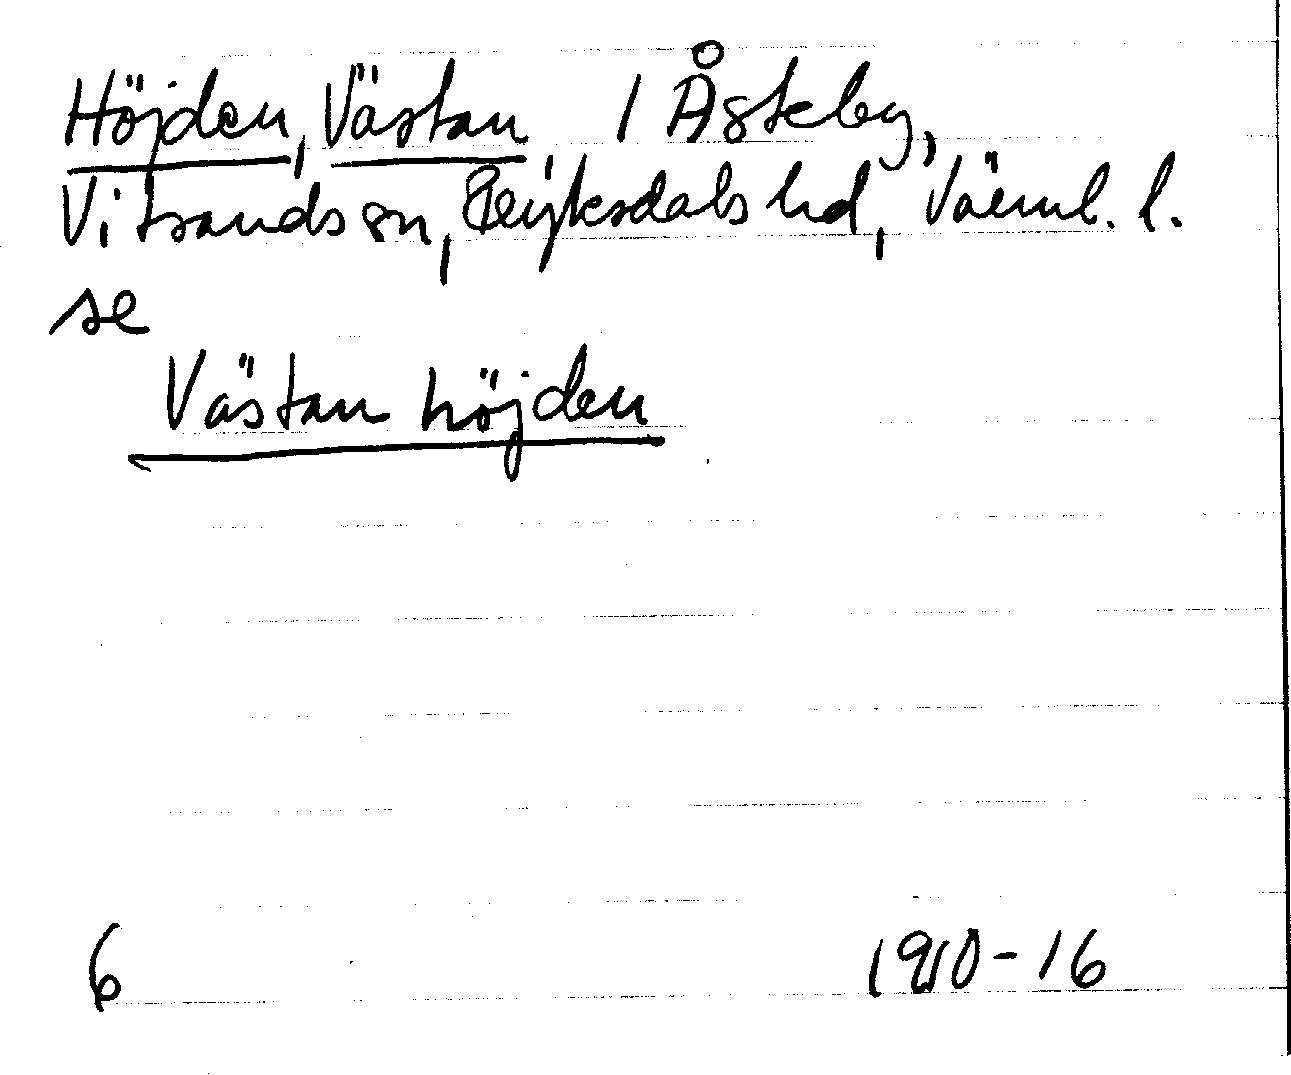 Höjden, Västan / Åsteby,
Vitsands sn, Fryksdals hd, Värml. l.
se
Västan höjden
6 1910-16